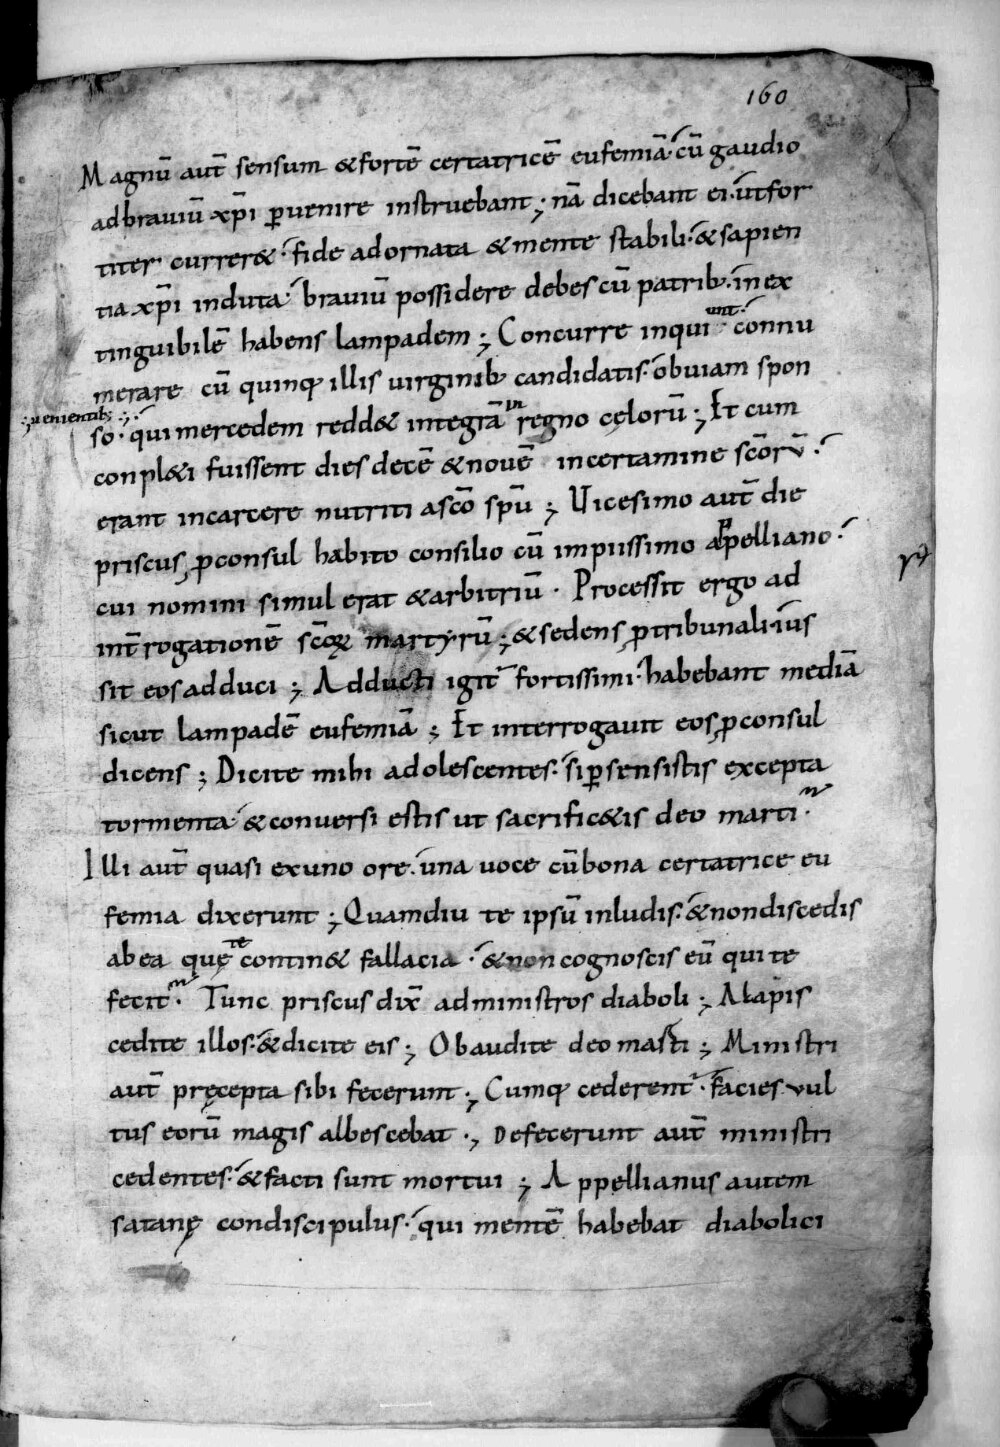 160
Magnū aut̄ sensum & fortē certatricē eufemiā· cū gaudio
ad braviū xp̄i ꝑuenire instruebant; nā dicebant ei· ut for
titer currer&· fide adornata & mente stabili· & sapien
tia xp̄i induta· braviū possidere debes cū patrib· in ex
tinguibilē habens lampadem; Concurre inquiunt· connu
merare cū quinq illis virginib candidatis· obuiam spon
;uenientib;
so· qui mercedem redd& integrā in regno cęlorū; Et cum
conpl&i fuissent dies decē & nouē in certamine sc̄orū·
erant in carcere nutriti a sc̄o sp̄u; Uicesimo aut̄ die
priscus ꝓconsul habito consilio cū impiissimo appelliano·
cui nomini simul erat & arbitriū· Processit ergo ad
int̄rogationē sc̄oꝝ martyrū; & sedens ꝓ tribunali· ius
sit eos adduci; Adducti igit̄ fortissimi· habebant mediā
sicut lampadē eufemiā; Et interrogauit eos ꝓconsul
dicens; Dicite mihi adolescentes· si ꝑsensistis excepta
tormenta· & conuersi estis ut sacrific&is deo marti·
Illi aut̄ quasi ex uno ore· una uoce cū bona certatrice eu
femia dixerunt; Quamdiu te ipsū inludis· & non discedis
ab ea quę te contin& fallacia· & non cognoscis eū qui te
fecit· Tunc priscus dix̄ ad ministros diaboli; Alapis
cedite illos· & dicite eis; Obaudite deo marti; Ministri
aut̄ pręcepta sibi fecerunt; Cumq cederent̄· facies uul
tus eorū magis albescebat·; Defecerunt aut̄ ministri
cedentes· & facti sunt mortui; Appellianus autem
satanę condiscipulus· qui mentē habebat diabolici